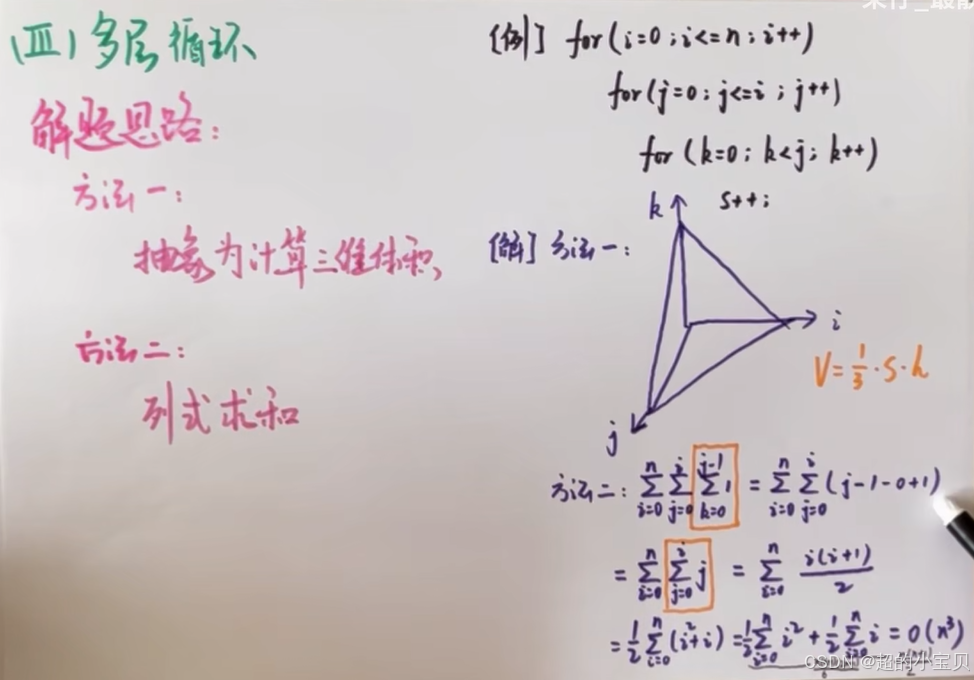 (三) 多层循环
解题思路:
方法一:
抽象为计算三维体积
方法二:
列式求和
[例] for(i=0;i<=n;i++)
for(j=0;j<=i;j++)
for(k=0;k<j;k++)
s++;
[解] 方法一:
k
i
j
V=1/3·s·h
方法二: ∑_{i=0}^{n} ∑_{j=0}^{i} ∑_{k=0}^{j-1} 1 = ∑_{i=0}^{n} ∑_{j=0}^{i} (j-1-0+1)
= ∑_{i=0}^{n} ∑_{j=0}^{i} j = ∑_{i=0}^{n} i(i+1)/2
= 1/2 ∑_{i=0}^{n} (i²+i) = 1/2 ∑_{i=0}^{n} i² + 1/2 ∑_{i=0}^{n} i = O(n³)
CSDN @超的小宝贝